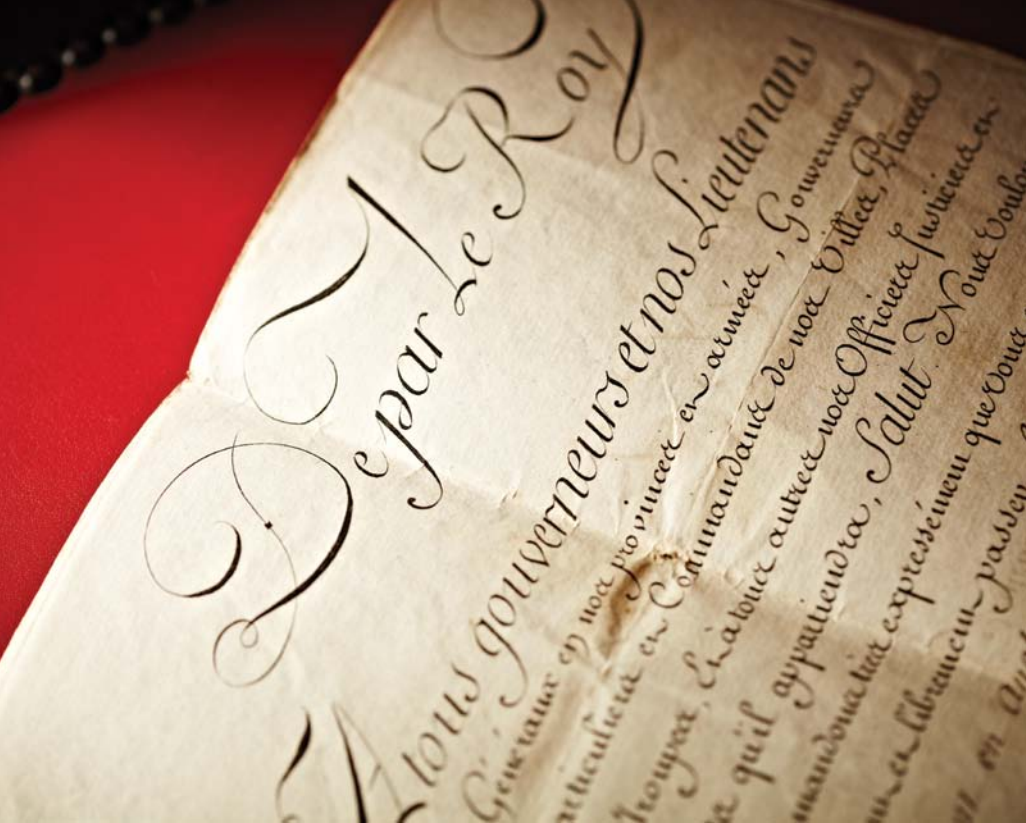 De par Le Roy
A tous gouverneurs et nos Lieutenans
Généraux en nos provinces en armées, Gouverneurs
articuliers en Commandans de nos Villes, Places
Troupes, En à tous autres nos Officiers Justiciers en
qu'il appartiendra, Salut Nous
mandons très expressément que vous
en librement passer